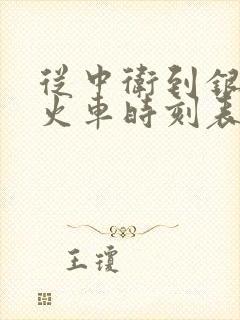 從中衛到銀
火車時刻表
王瓊